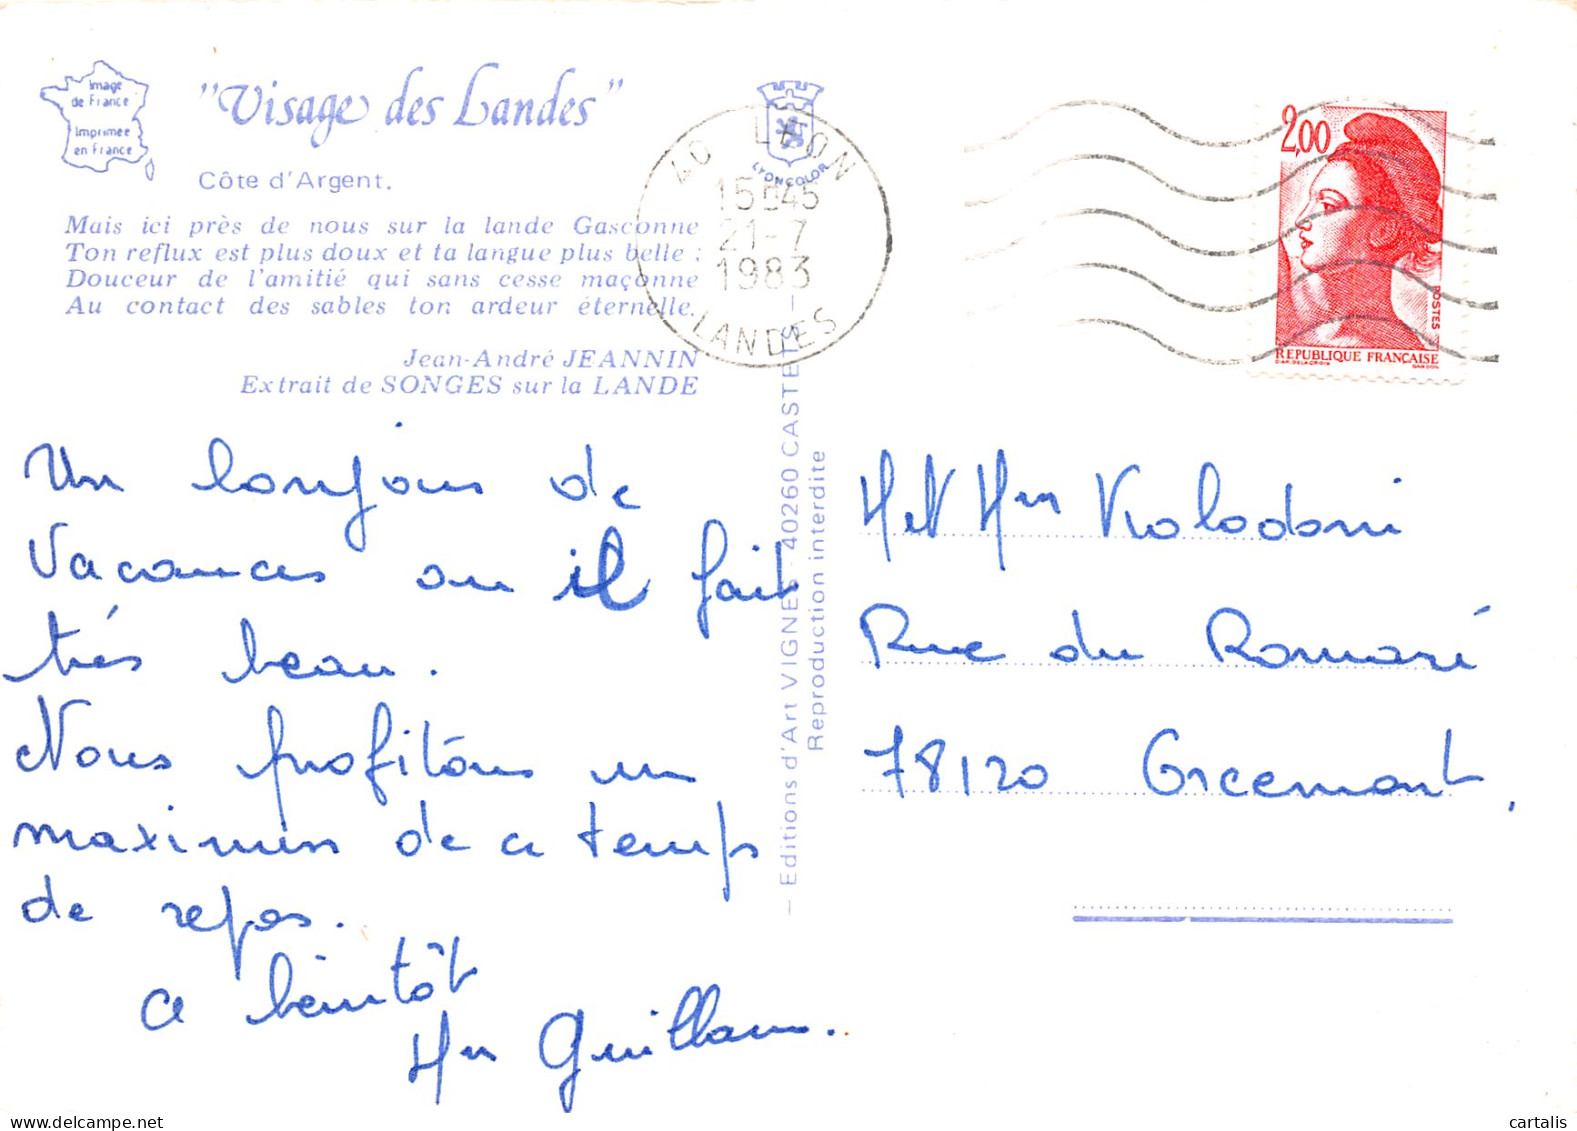 Image
de France
Imprimée
en France
"Visage des Landes"
Côte d'Argent.
Mais ici près de nous sur la lande Gasconne
Ton reflux est plus doux et ta langue plus belle :
Douceur de l'amitié qui sans cesse maçonne
Au contact des sables ton ardeur éternelle.
Jean-André JEANNIN
Extrait de SONGES sur la LANDE
LYONCOLOR
40 L
ON
15H45
21-7
1983
LANDES
2,00
POSTES
REPUBLIQUE FRANÇAISE
D'AP. DELACROIX GANDON
Editions d'Art VIGNES - 40260 CASTETS
Reproduction interdite
Un bonjour de
Vacances ou il fait
très beau.
Nous profitons un
maximum de ce temps
de repos.
a bientôt
Mr Guillaum.
M et Mm Kolodoni
Rue du
78120 Greemont,
cartalis